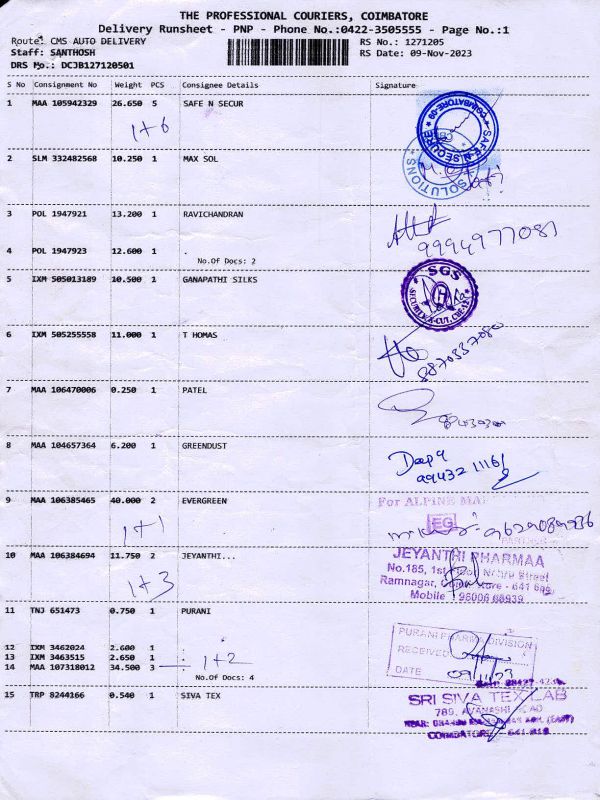 THE PROFESSIONAL COURIERS, COIMBATORE
Delivery Runsheet - PNP - Phone No.:0422-3505555 - Page No.:1
Route: CMS AUTO DELIVERY RS No.: 1271205
Staff: SANTHOSH RS Date: 09-Nov-2023
DRS No.: DCJB127120501
S No Consignment No Weight PCS Consignee Details Signature
1 MAA 105942329 26.650 5 SAFE N SECUR
1+6
SAFE-N-SECURE
COIMBATORE-09
2 SLM 332482568 10.250 1 MAX SOL
SOLUTIONS
3 POL 1947921 13.200 1 RAVICHANDRAN
4 POL 1947923 12.600 1 .
No.Of Docs: 2
5 IXM 505013189 10.500 1 GANAPATHI SILKS
SGS
6 IXM 505255558 11.000 1 T HOMAS
7 MAA 106470006 0.250 1 PATEL
8 MAA 104657364 6.200 1 GREENDUST
Deepa
9 MAA 106385465 40.000 2 EVERGREEN
1+1
For ALPINE
EG
10 MAA 106384694 11.750 2 JEYANTHI...
1+3
JEYANTHI PHARMAA
No.185, 1st Street
Ramnagar,
Mobile : 98006 66939
11 TNJ 651473 0.750 1 PURANI
PURANI PHARMA DIVISION
RECEIVED
12 IXM 3462024 2.600 1
13 IXM 3463515 2.650 1 :
14 MAA 107318012 34.500 3
1+2
No.Of Docs: 4
DATE 09/11/23
15 TRP 8244166 0.540 1 SIVA TEX
SRI SIVA TEX LAB
789, AVANASHI ROAD